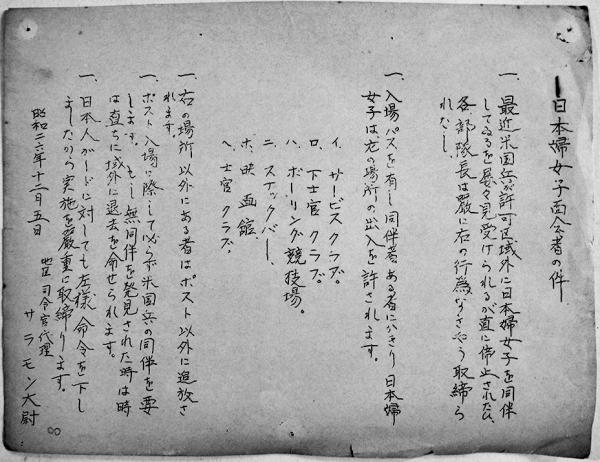 日本婦女子面会者の件
一、最近米国兵が許可区域外に日本婦女子を同伴
してゐるを屡々見受けられるが直に停止されたし、
各部隊長は厳に右の行為なきやう取締ら
れたし。
一、入場パスを有し同伴者ある者にかぎり日本婦
女子は左の場所の出入を許されます。
イ、サービスクラブ。
ロ、下士官クラブ。
ハ、ボーリング競技場。
ニ、スナックバー、
ホ、映画館、
ヘ、士官クラブ、
一、右の場所以外にある者はポスト以外に追放さ
れます。
一、ポスト入場に際して必らず米国兵の同伴を要
します。もし無同伴を発見された時は時
は直ちに域外に退去を命せられます。
一、日本人ガードに対しても左様命令を下し
ましたから実施を厳重に取締ります。
昭和二六年十二月五日
地区司令官代理
サラモン大尉